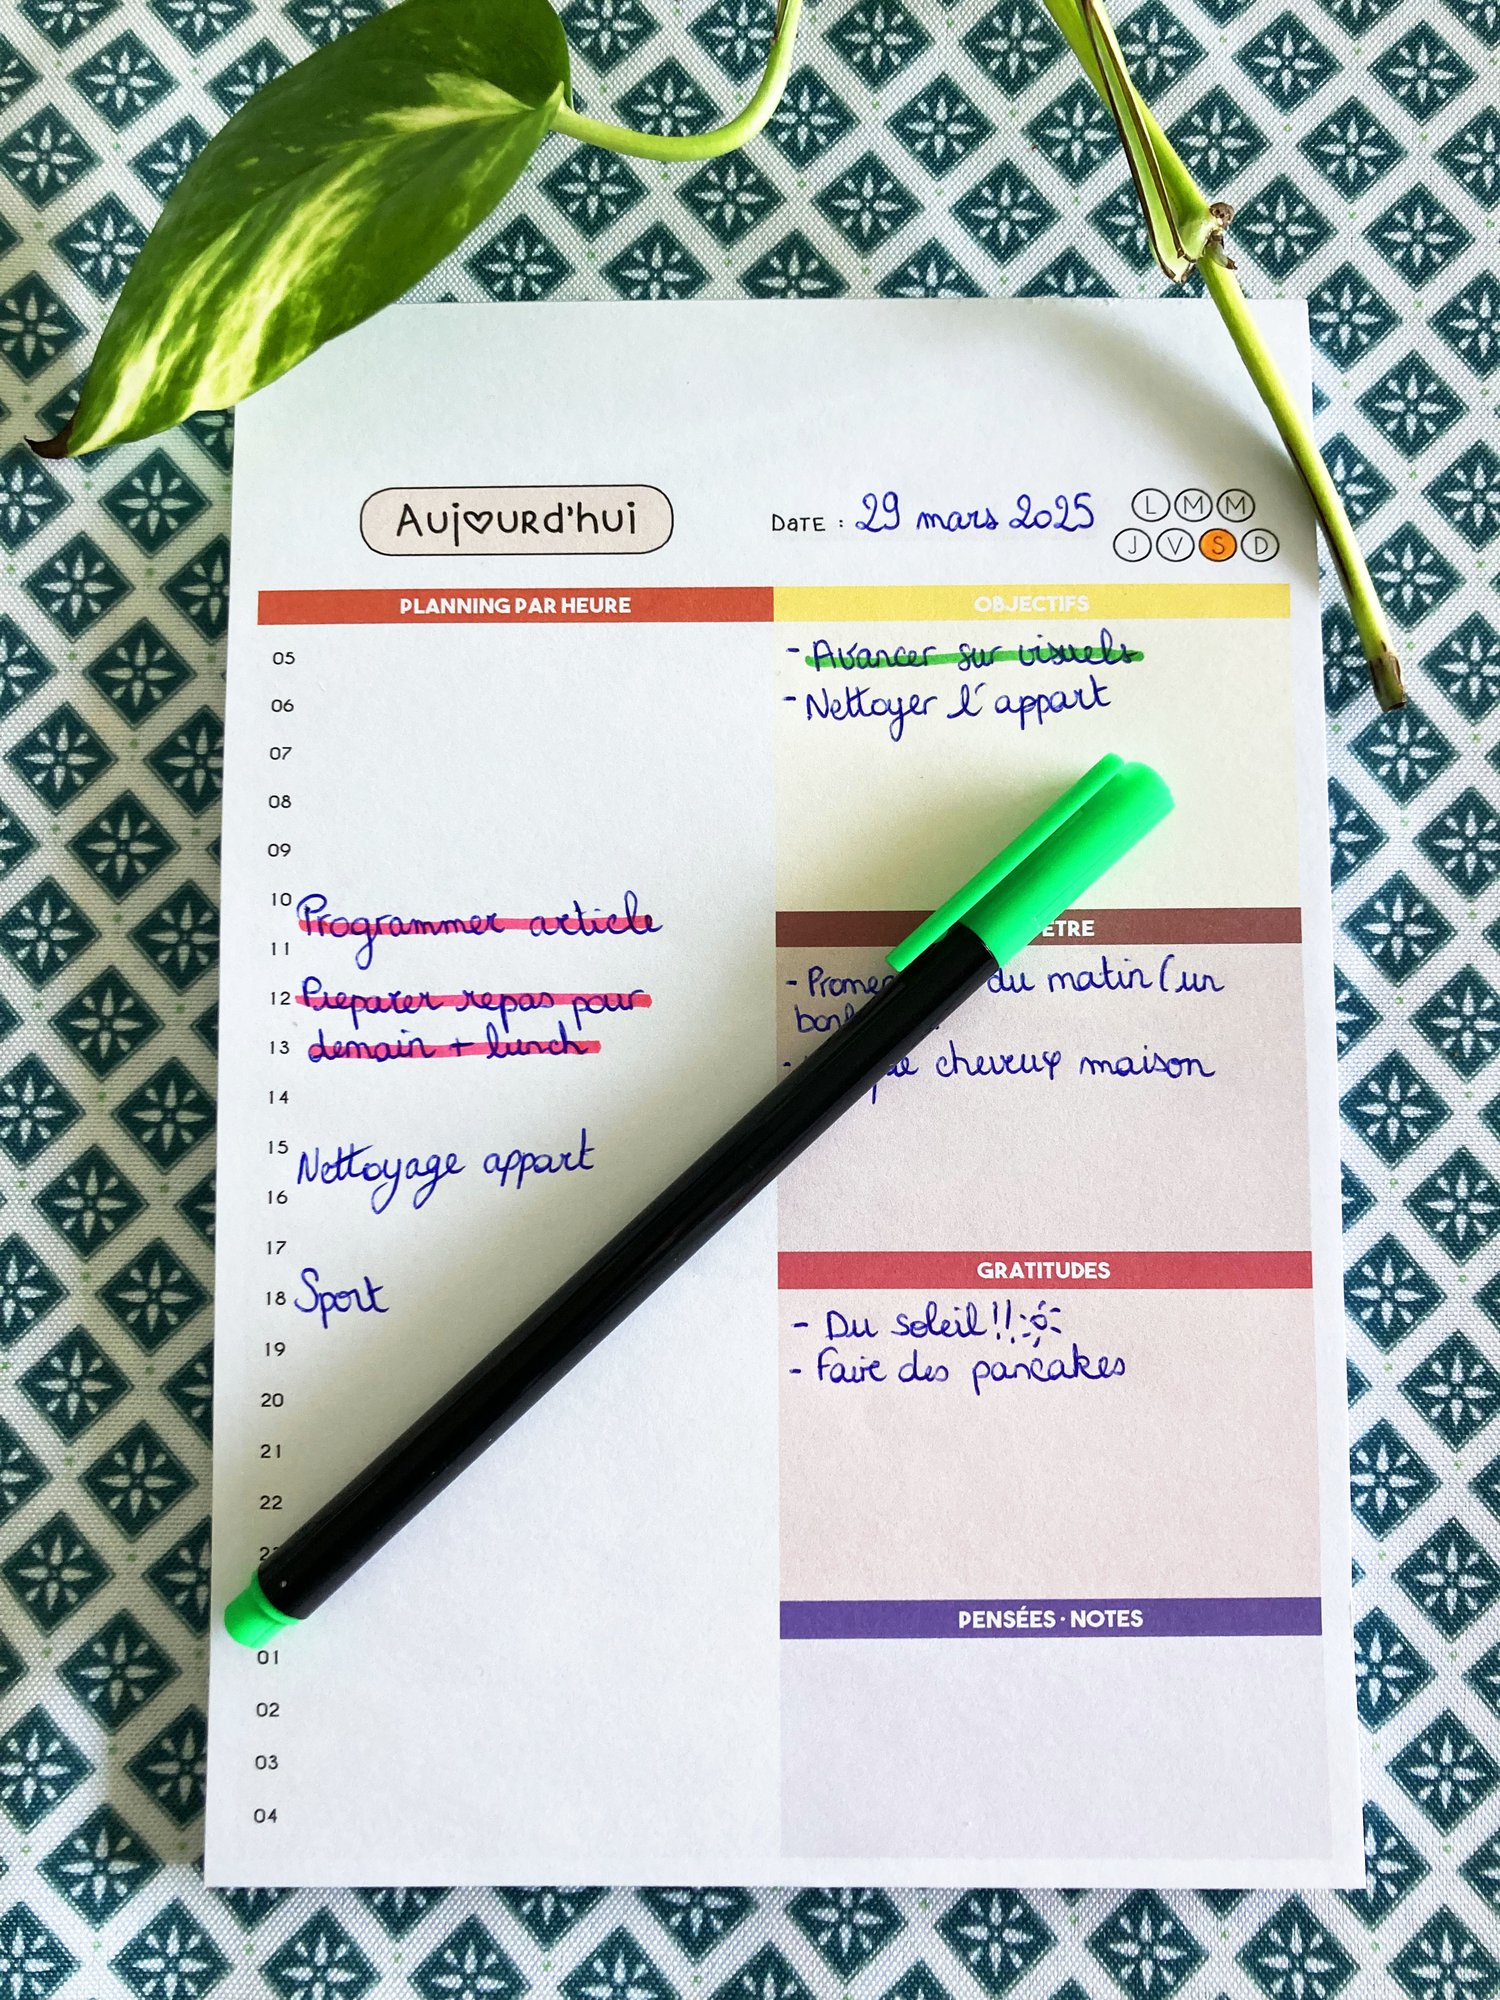 Aujourd'hui
Date : 29 mars 2025
L M M
J V S D
PLANNING PAR HEURE
05
06
07
08
09
10 Programmer article
11
12 Préparer repas pour
13 demain + lunch
14
15 Nettoyage appart
16
17
18 Sport
19
20
21
22
01
02
03
04
OBJECTIFS
- Avancer sur visuels
- Nettoyer l'appart
ETRE
- du matin (un
cheveux maison
GRATITUDES
- Du soleil!!
- Faire des pancakes
PENSÉES · NOTES